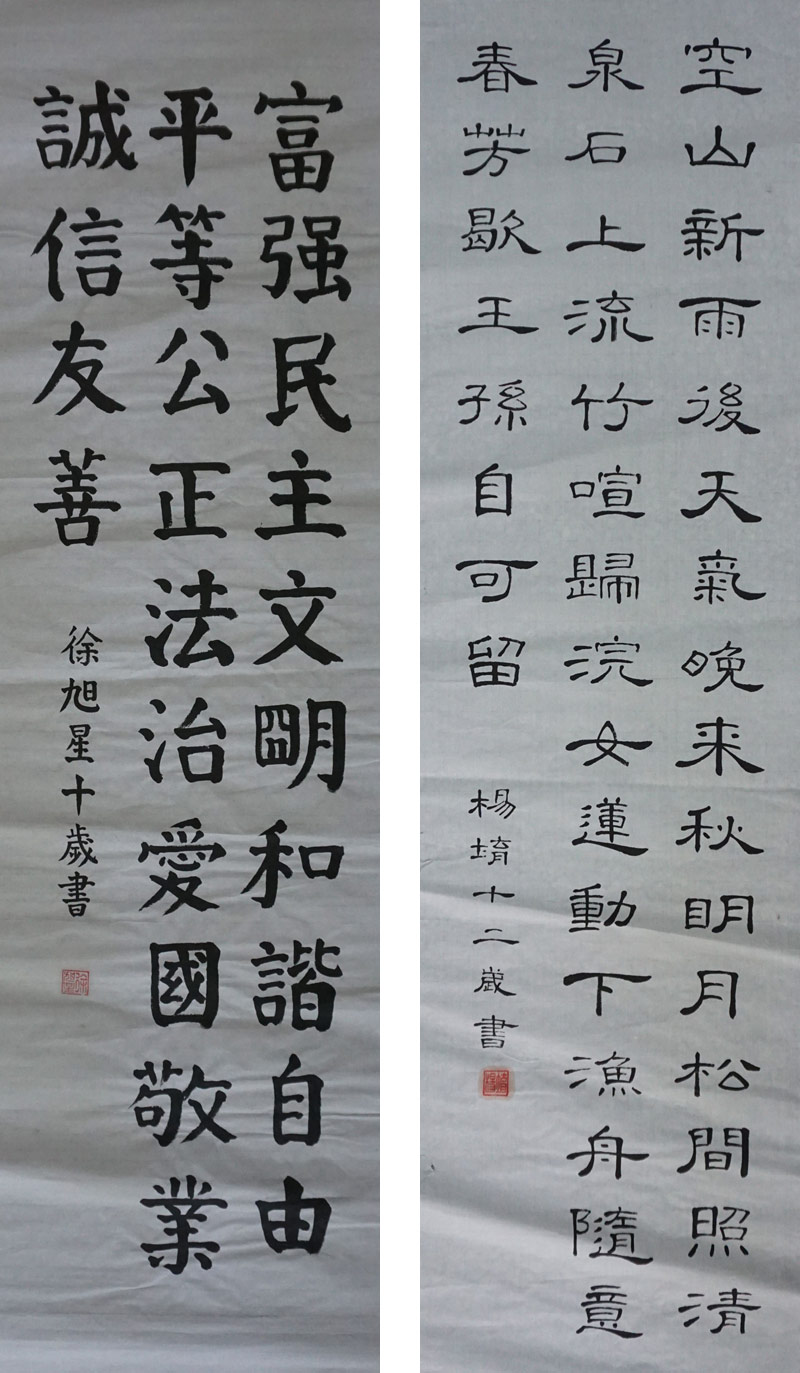 富强民主文明和諧自由
平等公正法治愛國敬業
誠信友善
徐旭星十歲書
空山新雨後天氣晚来秋明月松間照清
泉石上流竹喧歸浣女蓮動下漁舟隨意
春芳歇王孫自可留
楊堉十二歲書